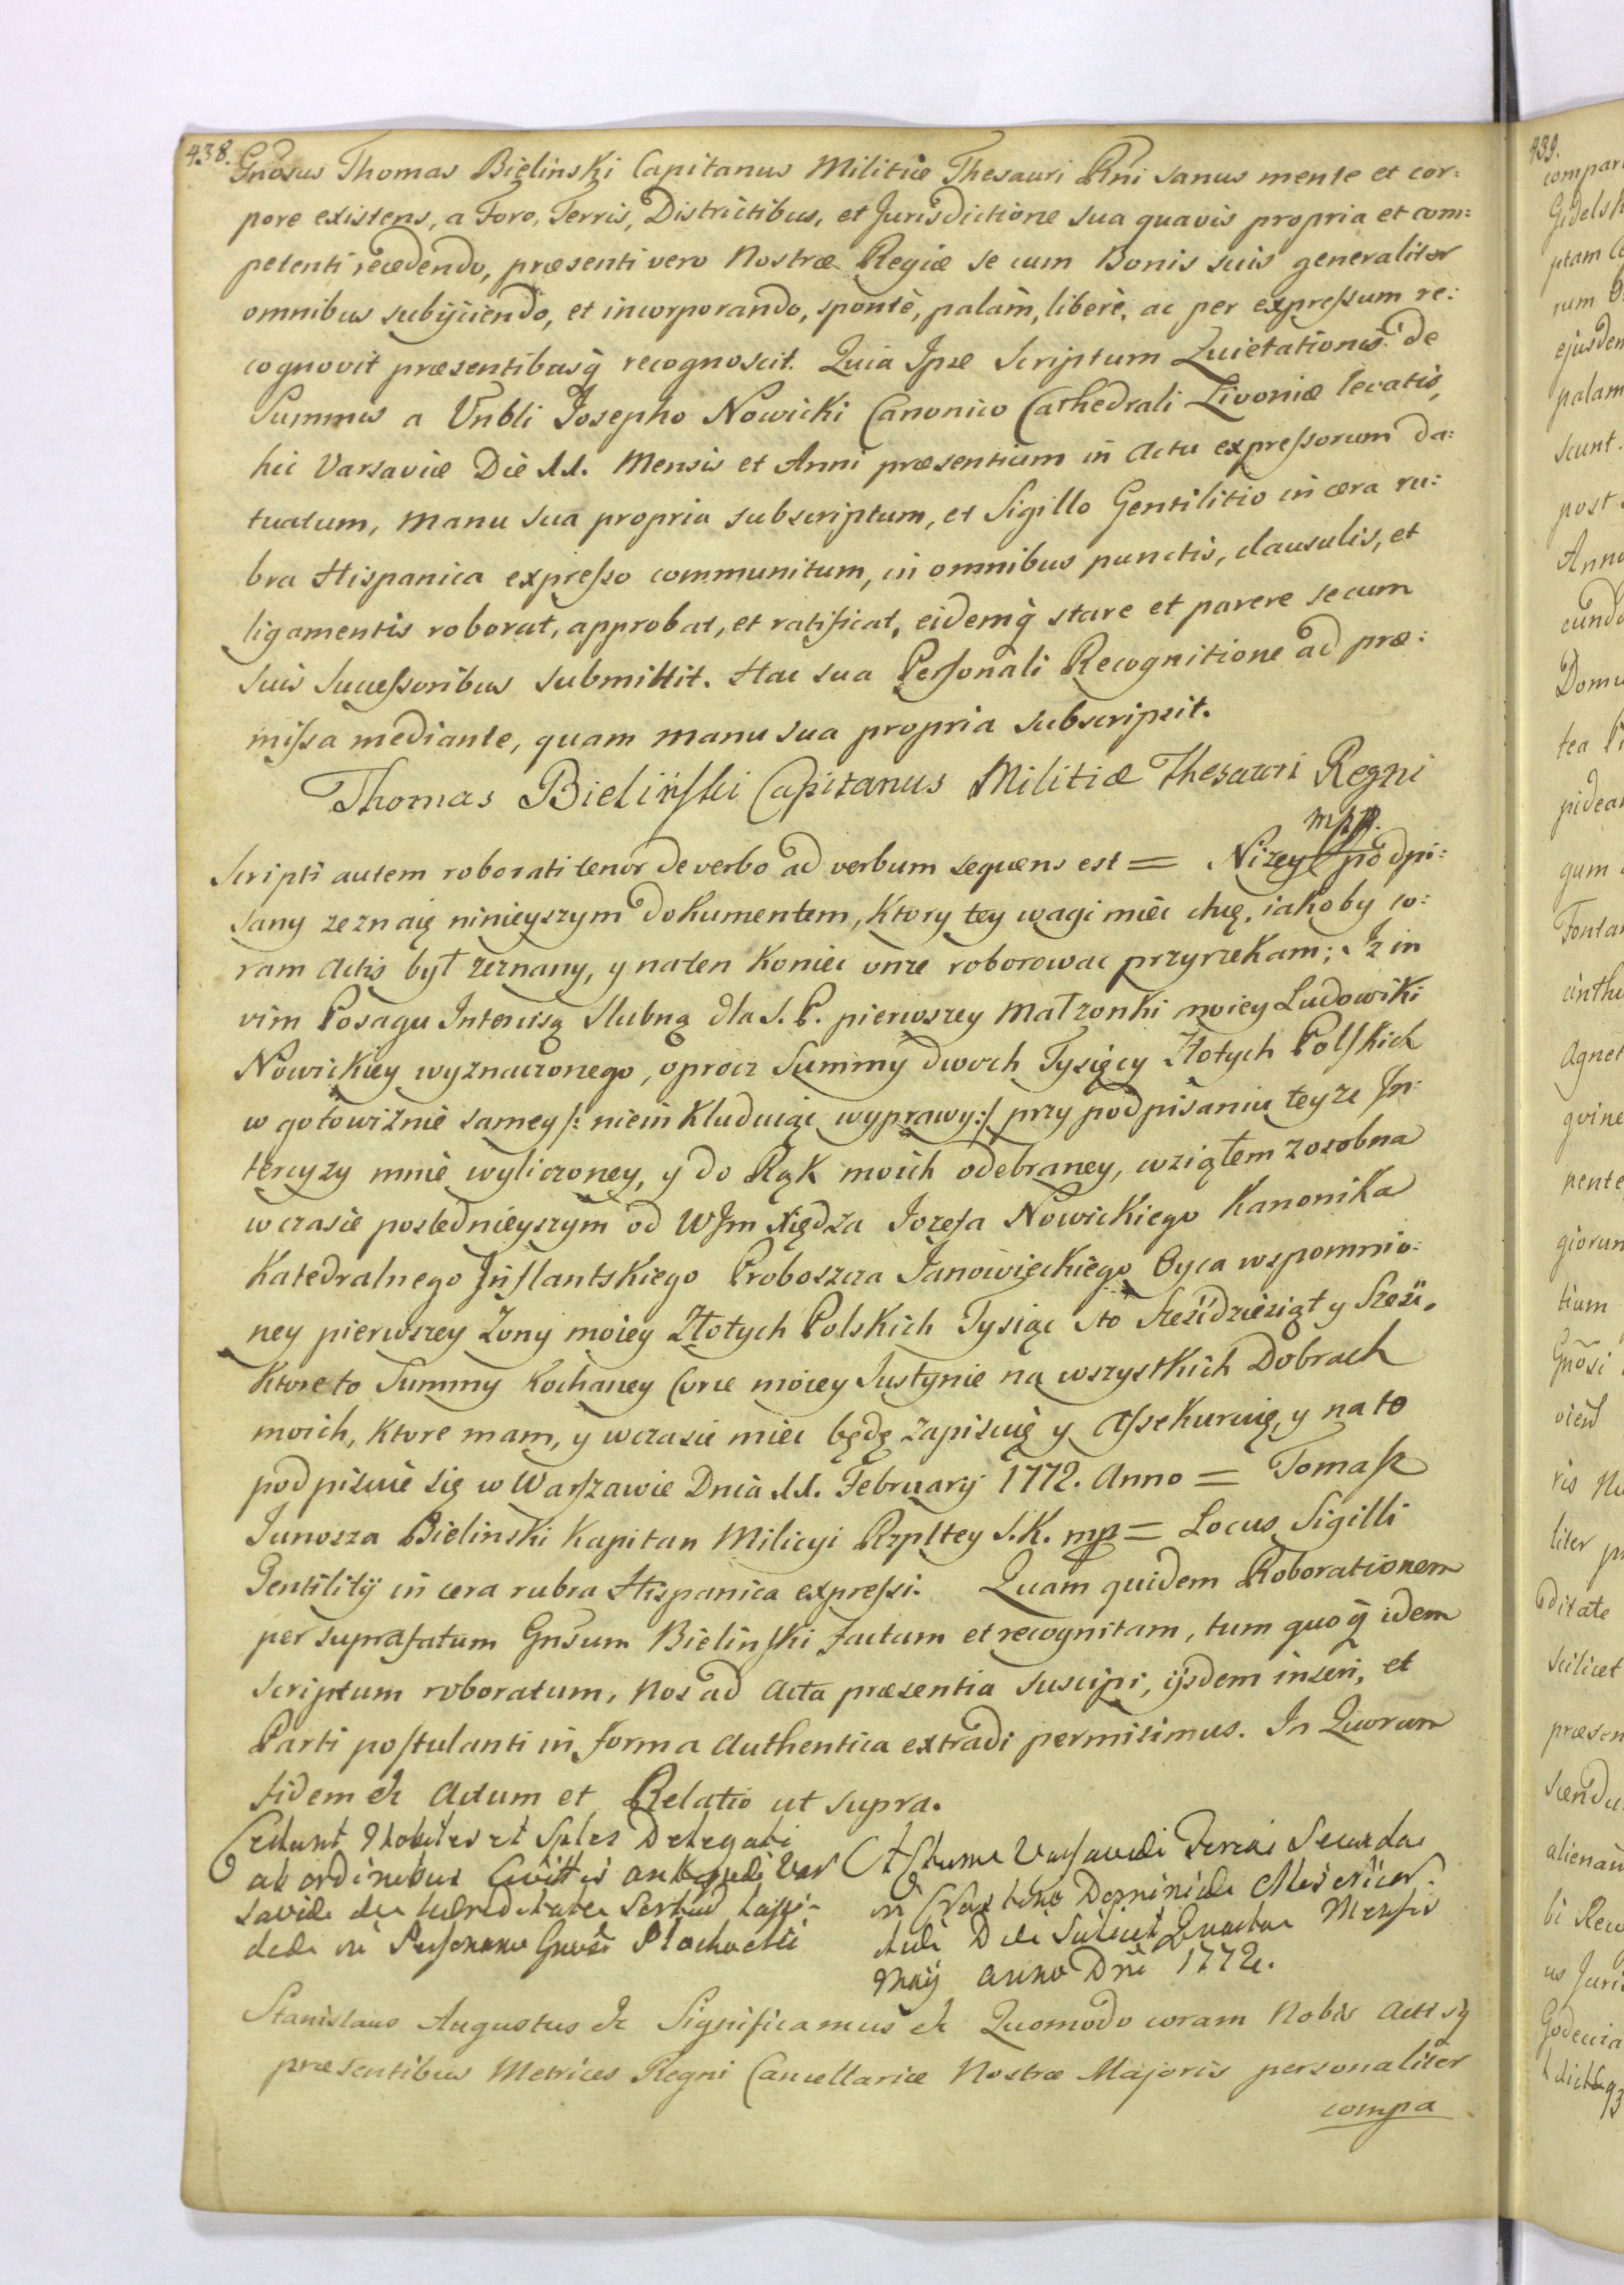 438.
Gnosus Thomas Bielinski Capitanus Militiæ Thesauri Rni sanus mente et cor:
pore existens, a Foro, Terris, Districtibus, et Jurisdictione sua quavis propria et com:
petenti recedendo, præsenti vero Nostræ Regiæ se cum Bonis suis generaliter
omnibus subijciendo, et incorporando, sponte, palam, libere, ac per expressum re:
cognovit præsentibusq recognoscit. Quia Ipse Scriptum Quietationis de
Summis a Vnbli Josepho Nowicki Canonico Cathedrali Livoniæ levatis,
hic Varsaviæ Die 11. Mensis et Anni præsentium in Actu expressorum da:
tuatum, manu sua propria subscriptum, et Sigillo Gentilitio in cera ru:
bra Hispanica expresso communitum, in omnibus punctis, clausulis, et
ligamentis roborat, approbat, et ratificat, eidemq stare et parere se cum
suis Successoribus submittit. Hac sua Personali Recognitione ad præ:
missa mediante, quam manu sua propria subscripsit.
Thomas Bieliński Capitanus Militiæ Thesauri Regni
mpp.
Scripti autem roborati tenor de verbo ad verbum sequens est = Nizey podpi:
sany zeznaię ninieyszym dokumentem, ktory tey wagi mieć chcę, iakoby co:
ram Actis był zeznany, y na ten koniec onże roborować przyrzekam; Iż in
vim Posagu Intercyzą Slubną dla S. P. pierwszey Małzonki moiey Ludowiki
Nowickiey wyznaczonego, oprocz Summy dwoch Tysięcy Złotych Polskich
w gotowiźnie samey /: nie in kluduiąc wyprawy :/ przy podpisaniu teyze In:
tercyzy mnie wyliczoney, y do Rąk moich odebraney, wziąłem zosobna
w czasie poslednieyszym od WJm Xiędza Jozefa Nowickiego Kanonika
Katedralnego Inflantskiego Proboszcza Janowieckiego Oyca wspomnio:
ney pierwszey Zony moiey Złotych Polskich Tysiąc sto sześćdziesiąt y sześć.
Ktore to Summy kochaney Corce moiey Justynie na wszystkich Dobrach
moich, ktore mam, y w czasie mieć będę zapisuię y assekuruię, y na to
podpisuie się w Warszawie Dnia 11. Februarij 1772. Anno = Tomasz
Junosza Bielinski Kapitan Milicyi Rzpltey S.K. mp = Locus Sigilli
Gentilitij in cera rubra Hispanica expressi. Quam quidem Roborationem
per suprafatum Gnsum Bielinski factam et recognitam, tum quoq idem
scriptum roboratum, Nos ad Acta præsentia suscipi, ijsdem inseri, et
Parti postulanti in forma Authentica extradi permisimus. In Quorum
fidem &c Actum et Relatio ut supra.
Cedunt Nobiles et Sples Delegati
ab ordinibus Civittis antiquæ Var
saviæ de hæreditate Lappi-
deæ in Personam Gnosi Płochocki
Actum Varsaviæ Feria Secunda
in Crastino Dominicæ Misericor:
diæ Die Scilicet Quarta Mensis
Maij Anno Dni 1772.
Stanislaus Augustus &c Significamus &c Quomodo coram Nobis Actisq
præsentibus Metrices Regni Cancellariæ Nostræ Majoris personaliter
compa
439.